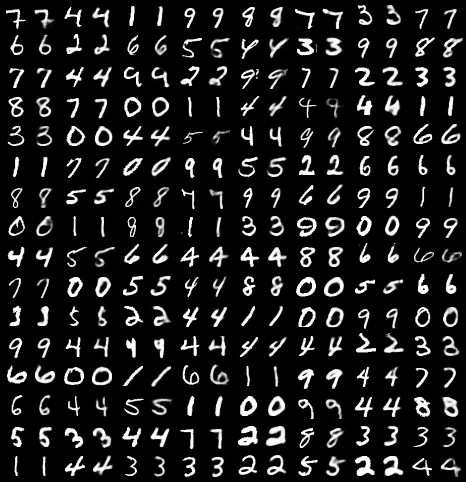 7 7 4 4 1 1 9 9 8 8 7 7 3 3 7 7
6 6 2 2 6 6 5 5 4 4 3 3 9 9 8 8
7 7 4 4 9 9 2 2 9 9 7 7 2 2 3 3
8 8 7 7 0 0 1 1 4 4 4 9 4 4 1 1
3 3 0 0 4 4 5 5 4 4 9 9 8 8 6 6
1 1 7 7 0 0 9 9 5 5 2 2 6 6 6 6
8 8 5 5 8 8 7 7 9 9 6 6 9 9 1 1
0 0 1 1 8 8 1 1 3 3 9 9 0 0 9 9
4 4 5 5 6 6 4 4 4 4 8 8 6 6 6 6
7 7 0 0 5 5 4 4 8 8 0 0 5 5 6 6
3 3 5 5 2 2 4 4 1 1 0 0 9 9 0 0
9 9 4 4 9 9 4 4 4 4 4 4 2 2 3 3
6 6 0 0 1 1 6 6 1 1 9 9 4 4 7 7
6 6 4 4 5 5 1 1 0 0 9 9 4 4 8 8
5 5 3 3 4 4 7 7 2 2 8 8 3 3 3 3
1 1 4 4 3 3 3 3 2 2 5 5 2 2 4 4